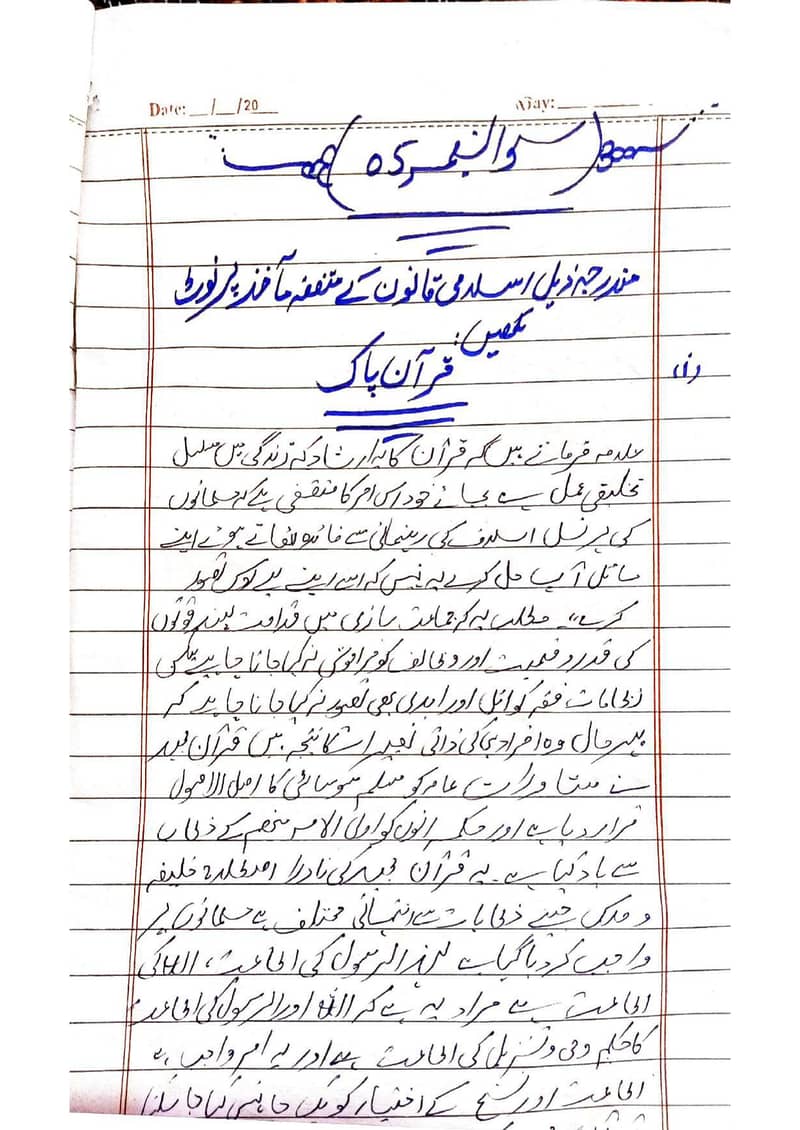 Date: __/__/20__ Day: ______
سوالنمبر 05
مندرجہ ذیل اسلامی قانون کے متفقہ مآخذ پر نوٹ
لکھیں:
(i) قرآن پاک
علامہ فرماتے ہیں کہ قرآن کا یہ ارشاد کہ زندگی میں مسلسل
تخلیقی عمل ہے بجائے خود اس امر کا متقضی ہے کہ مسلمانوں
کی ہر نسل اسلاف کی رہنمائی سے فائدہ اٹھاتے ہوئے اپنے
مسائل آپ حل کرے یہ نہیں کہ اسے اپنے لیے تصور
کرے"۔ مطلب یہ کہ جماعت سازی میں قدامت پسند قوتوں
کی قدر و قیمت اور وظائف کو فراموش نہ کیا جانا چاہیے
نظامات فقہ کو اٹل اور ابدی بھی تصور نہ کیا جانا چاہیے کہ
بہر حال وہ افراد ہی کی ذاتی تعبیرات کا نتیجہ ہیں قرآن مجید
نے عامہ کو مسلم سوسائٹی کا اصل الاصول
قرار دیا ہے اور حکمرانوں کو اولی الامر منکم کے خطاب
سے یاد کیا ہے۔ یہ قرآن مجید کی خلیفہ
و جیسے خطابات سے انتہائی مختلف ہے مسلمانوں پر
واجب کر دیا گیا ہے لہذا الرسول کی اطاعت، اللہ کی
اطاعت ہے مراد یہ ہے کہ اللہ اور الرسول کی اطاعت
کا حکم وحی و تنزیل کی اطاعت ہے اور یہ امر واجب ہے
اطاعت اور کے اختیار کو نہیں کیا جا سکتا